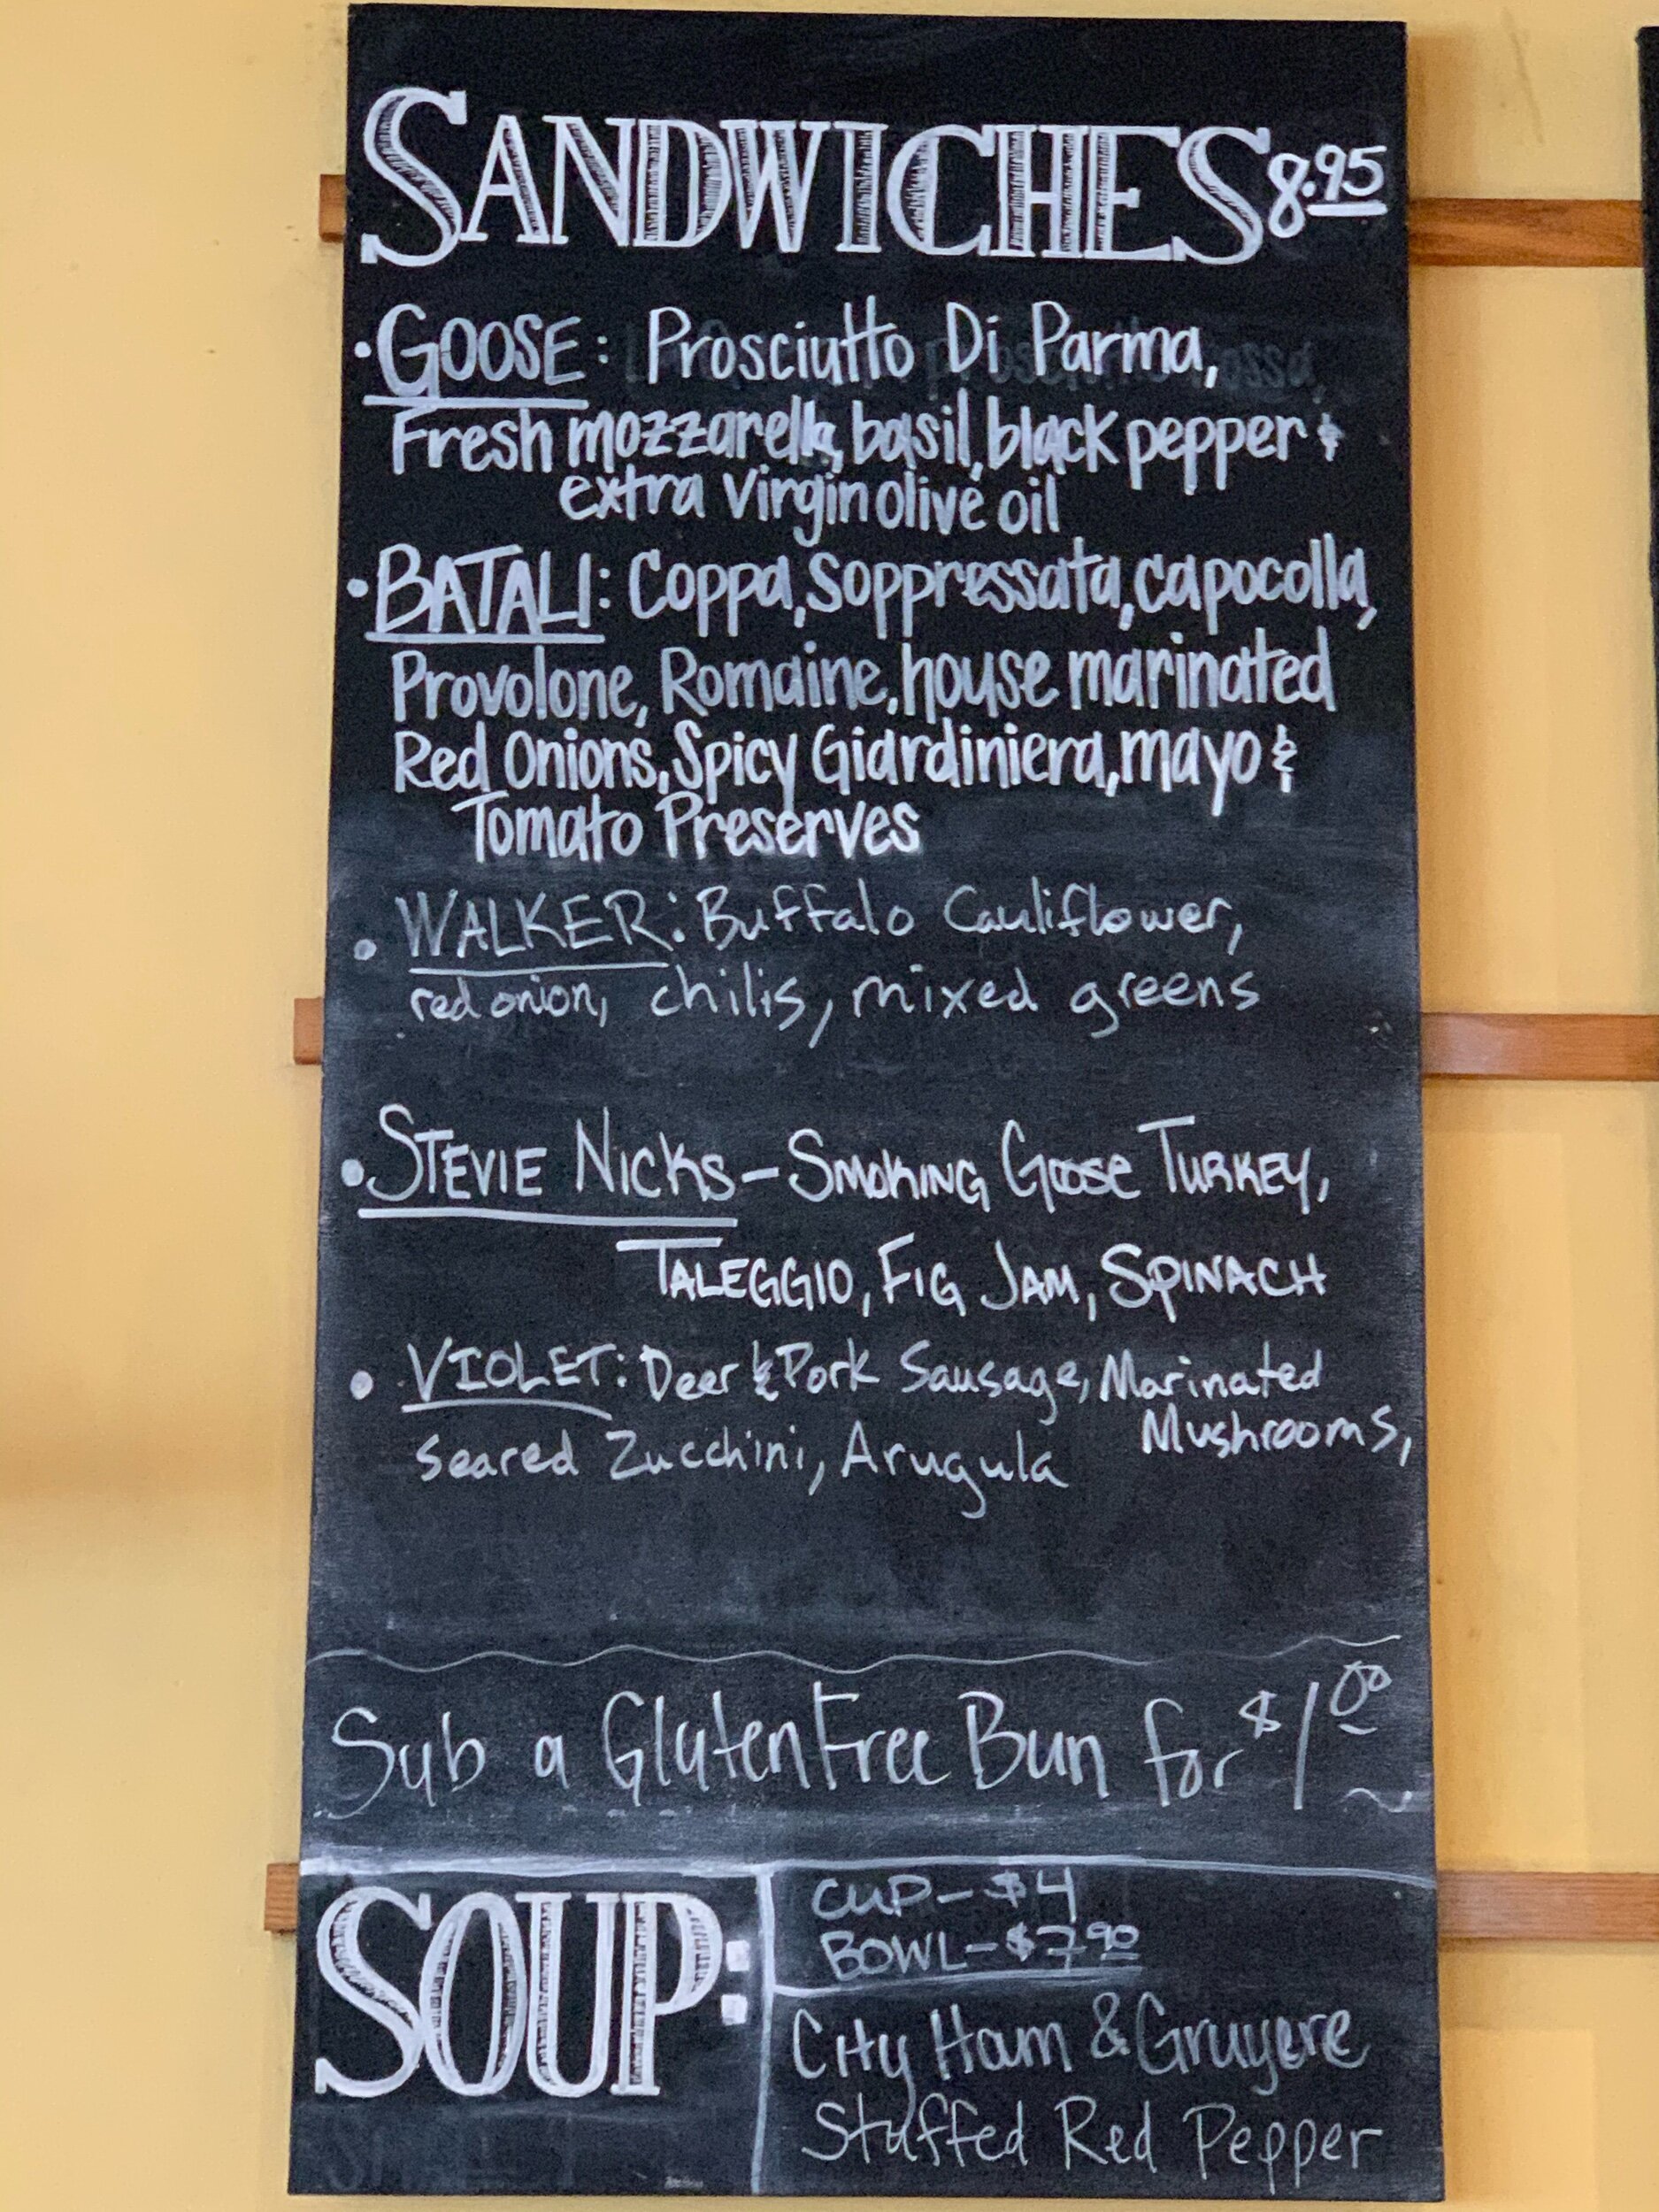 SANDWICHES 8.95
• GOOSE: Prosciutto Di Parma,
Fresh mozzarella, basil, black pepper &
extra virgin olive oil
• BATALI: Coppa, Soppressata, capocolla,
Provolone, Romaine, house marinated
Red Onions, Spicy Giardiniera, mayo &
Tomato Preserves
• WALKER: Buffalo Cauliflower,
red onion, chilis, mixed greens
• STEVIE NICKS – SMOKING Goose TURKEY,
TALEGGIO, FIG JAM, SPINACH
• VIOLET: Deer & Pork Sausage, Marinated
Mushrooms,
seared Zucchini, Arugula
Sub a Gluten Free Bun for $1 00
SOUP:
CUP – $4
BOWL – $7 90
City Ham & Gruyere
Stuffed Red Pepper